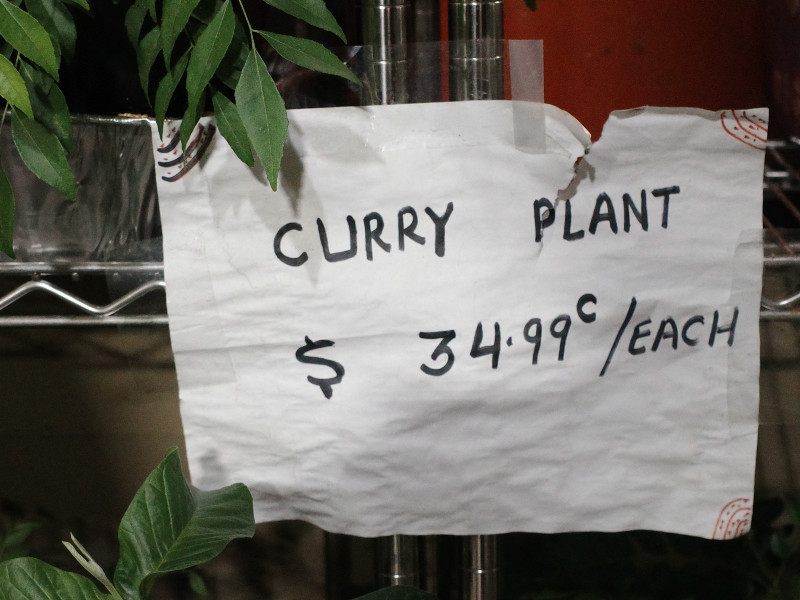 CURRY PLANT
$ 34.99c/EACH